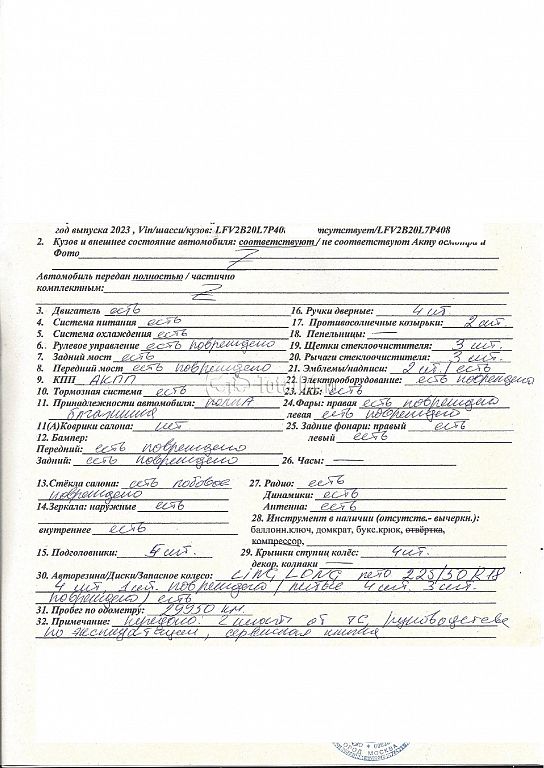 год выпуска 2023 , Vin/шасси/кузов: LFV2B20L7P40 тсутствует/LFV2B20L7P408
2. Кузов и внешнее состояние автомобиля: соответствуют / не соответствуют Акту осмотра и
Фото
Автомобиль передан полностью / частично
комплектным:
3. Двигатель есть
4. Система питания есть
5. Система охлаждения есть
6. Рулевое управление есть повреждено
7. Задний мост есть
8. Передний мост есть повреждено
9. КПП АКПП
10. Тормозная система есть
11. Принадлежности автомобиля: полка
багажника
11(А)Коврики салона: нет
12. Бампер:
Передний: есть повреждено
Задний: есть повреждено
13.Стёкла салона: есть лобовое
повреждено
14.Зеркала: наружные есть
внутреннее есть
15. Подголовники: 5 шт.
16. Ручки дверные: 4 шт
17. Противосолнечные козырьки: 2 шт.
18. Пепельницы: —
19. Щетки стеклоочистителя: 3 шт.
20. Рычаги стеклоочистителя: 3 шт.
21. Эмблемы/надписи: 2 шт. / есть
22. Электрооборудование: есть повреждено
23. АКБ: есть
24.Фары: правая есть повреждено
левая есть повреждено
25. Задние фонари: правый есть
левый есть
26. Часы: —
27. Радио: есть
Динамики: есть
Антенна: есть
28. Инструмент в наличии (отсутств.- вычеркн.):
баллонн.ключ, домкрат, букс.крюк, отвёртка,
компрессор,
29. Крышки ступиц колёс: 4 шт.
декор. колпаки —
30. Авторезина/Диски/Запасное колесо: LING LONG лето 225/50 R18
4 шт. 1 шт. повреждено / литые 4 шт. 3 шт.
повреждено / есть
31. Пробег по одометру: 29950 км.
32. Примечание: передано: 2 ключа от ТС, руководство
по эксплуатации, сервисная книжка
ГОРОД МОСКВА